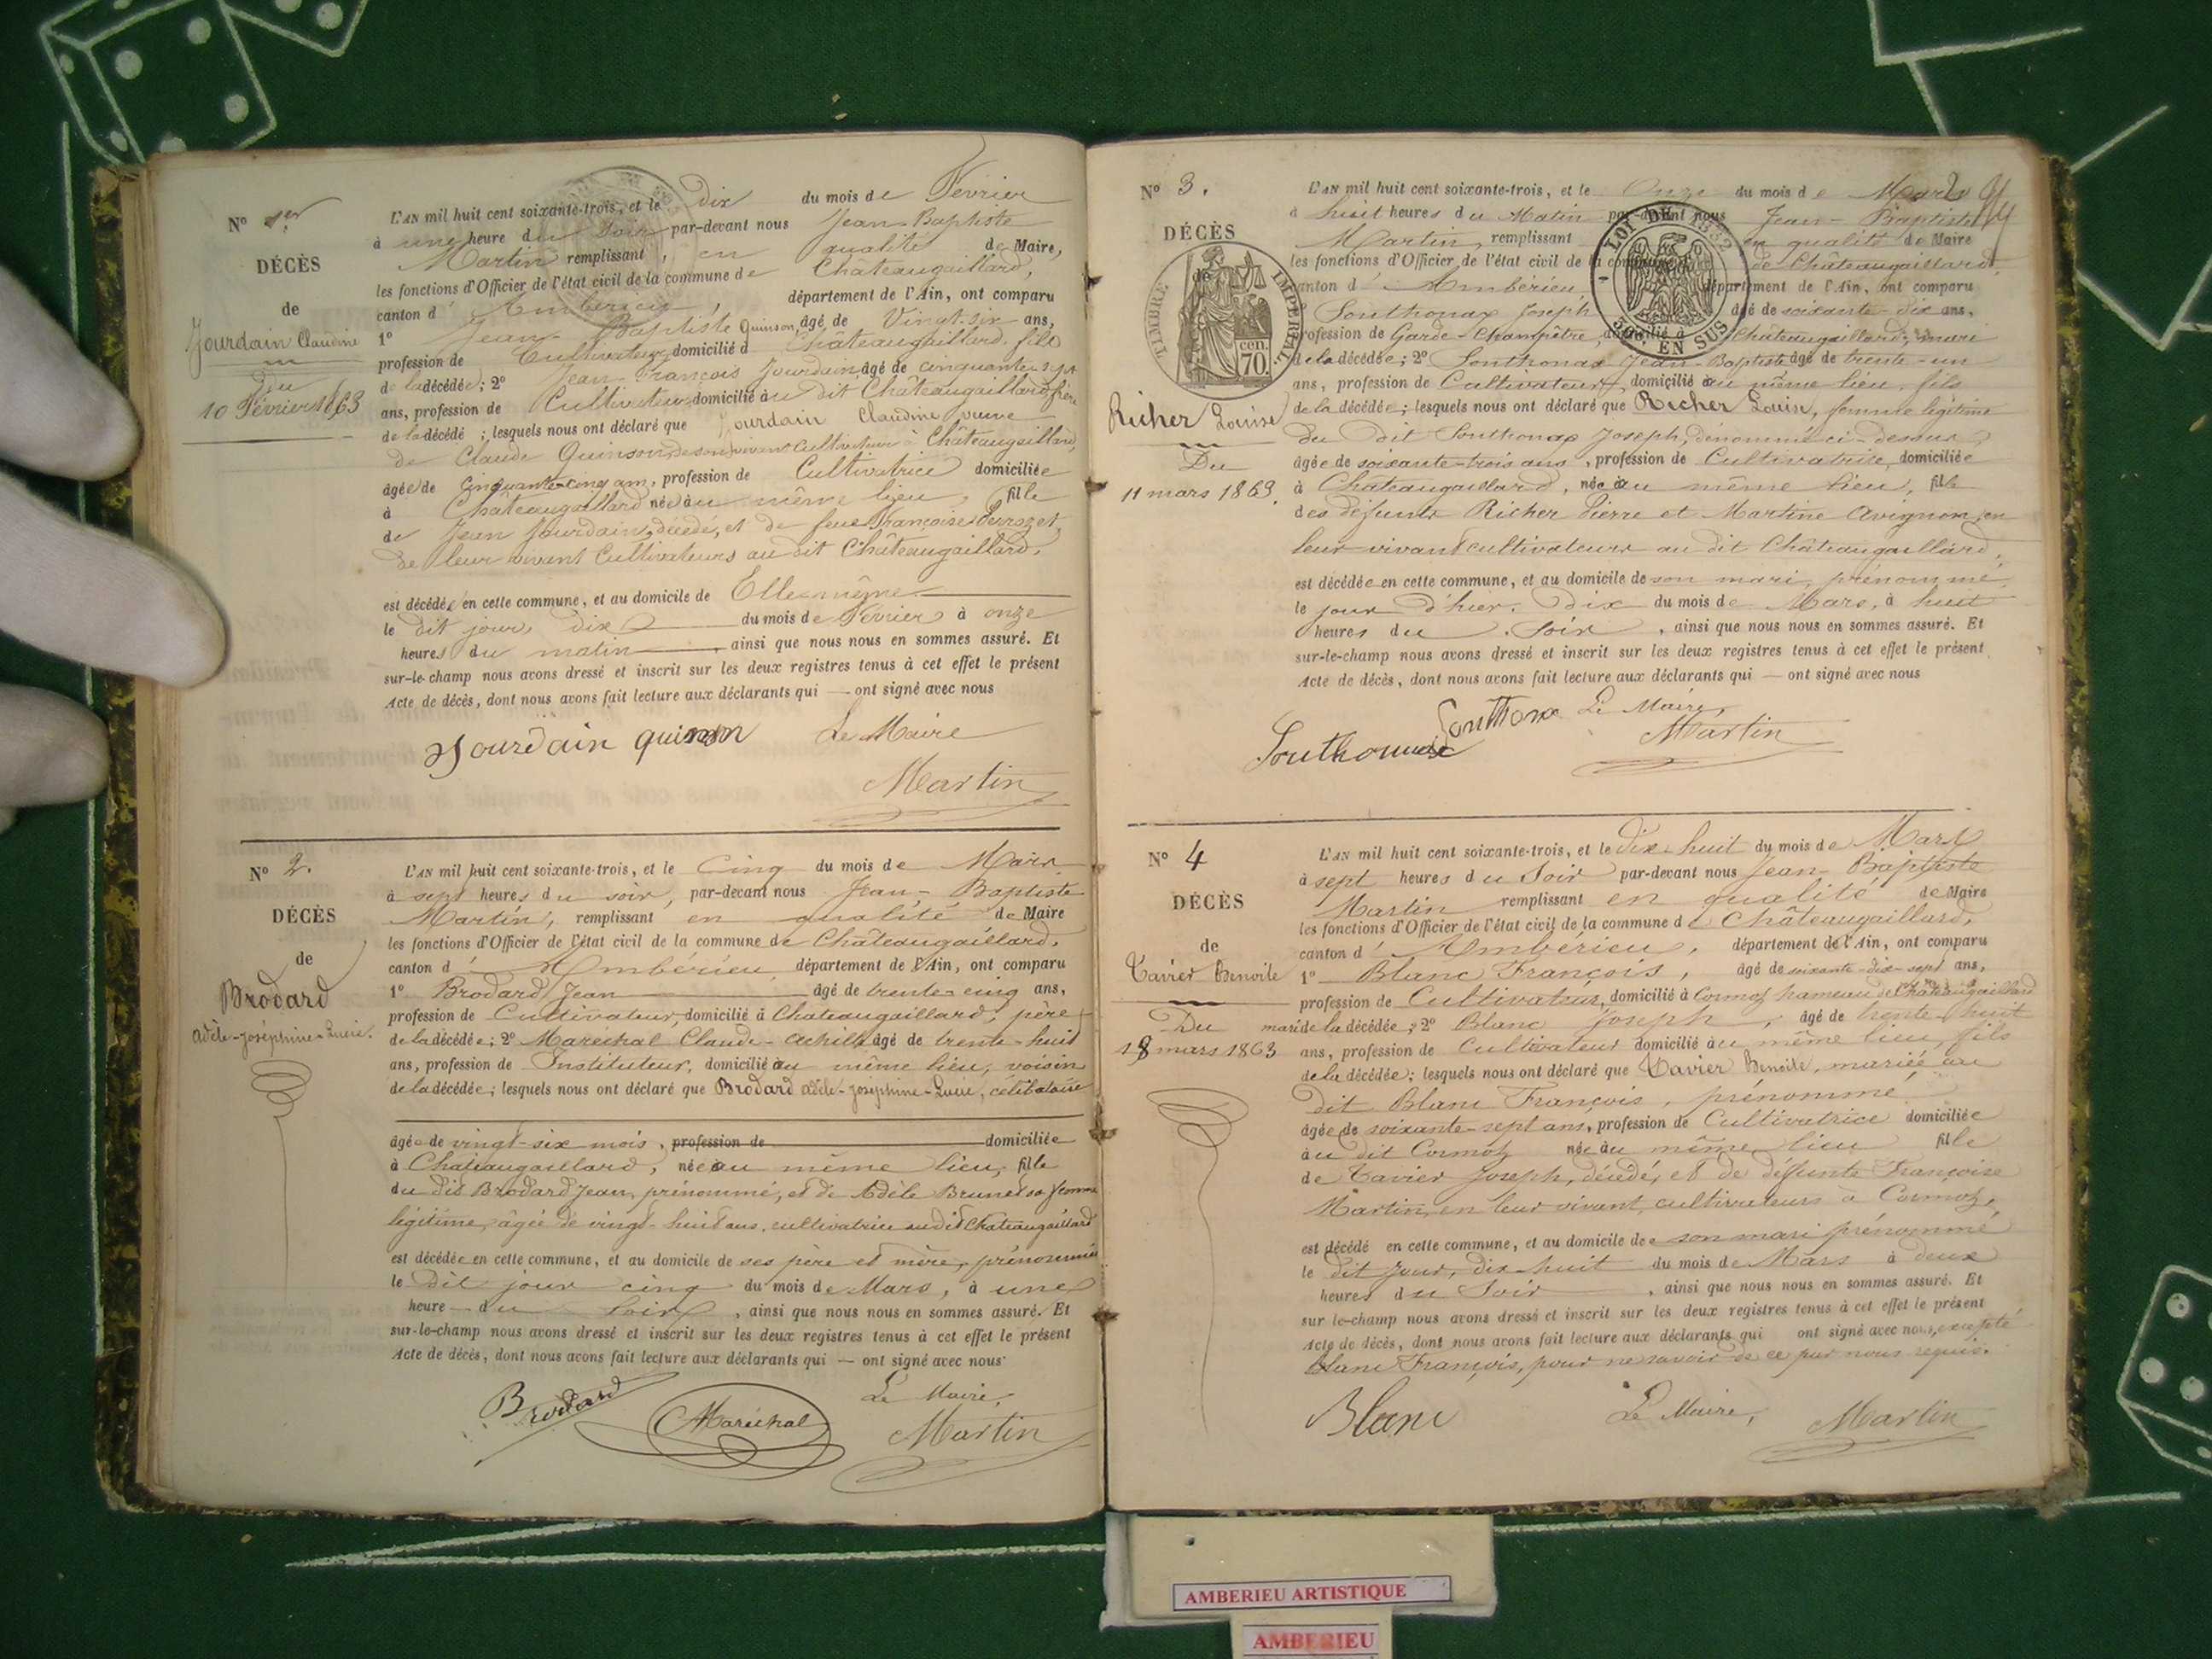 N° 1er
DÉCÈS
de
Jourdain Claudine
Du
10 Février 1863
L'AN mil huit cent soixante-trois, et le dix du mois de Février
à une heure du Soir par-devant nous Jean-Baptiste
Martin remplissant, en qualité de Maire,
les fonctions d'Officier de l'état civil de la commune de Châteaugaillard,
canton d'Ambérieu, département de l'Ain, ont comparu
1° Jean Baptiste Quinson, âgé de Vingt-six ans,
profession de Cultivateur, domicilié à Châteaugaillard, fils
de la décédée; 2° Jean François Jourdain, âgé de cinquante-sept
ans, profession de Cultivateur domicilié au dit Châteaugaillard, frère
de la décédé; lesquels nous ont déclaré que Jourdain Claudine, veuve
de Claude Quinson, de son vivant Cultivateur à Châteaugaillard,
âgée de cinquante-cinq ans, profession de Cultivatrice domiciliée
à Châteaugaillard née au même lieu, fille
de Jean Jourdain, décédé, et de feue Françoise
de leur vivant Cultivateurs au dit Châteaugaillard,
est décédée en cette commune, et au domicile de Elle-même
le dit jour, dix du mois de Février à onze
heures du matin, ainsi que nous nous en sommes assuré. Et
sur-le-champ nous avons dressé et inscrit sur les deux registres tenus à cet effet le présent
Acte de décès, dont nous avons fait lecture aux déclarants qui — ont signé avec nous
Jourdain quinson Le Maire
Martin
N° 2.
DÉCÈS
de
Brodard
Adèle-Joséphine-Lucie.
L'AN mil huit cent soixante-trois, et le Cinq du mois de Mars
à sept heures du soir, par-devant nous Jean-Baptiste
Martin, remplissant en qualité de Maire
les fonctions d'Officier de l'état civil de la commune de Châteaugaillard,
canton d'Ambérieu, département de l'Ain, ont comparu
1° Brodard Jean âgé de trente-cinq ans,
profession de Cultivateur, domicilié à Châteaugaillard, père
de la décédée; 2° Maréchal Claude-Achille âgé de trente-huit
ans, profession de Instituteur, domicilié au même lieu, voisin
de la décédée; lesquels nous ont déclaré que Brodard Adèle-Joséphine-Lucie, célibataire
âgée de vingt-six mois, profession de domiciliée
à Châteaugaillard, née au même lieu, fille
du dit Brodard Jean, prénommé, et de Adèle Brunet sa femme
légitime, âgée de vingt-huit ans, cultivatrice au dit Châteaugaillard
est décédée en cette commune, et au domicile de ses père et mère, prénommés
le dit jour cinq du mois de Mars, à une
heure du Soir, ainsi que nous nous en sommes assuré. Et
sur-le-champ nous avons dressé et inscrit sur les deux registres tenus à cet effet le présent
Acte de décès, dont nous avons fait lecture aux déclarants qui — ont signé avec nous
Brodard Maréchal Le Maire,
Martin
N° 3.
DÉCÈS
de
TIMBRE IMPÉRIAL
cen. 70.
Richer Louise
Du
11 mars 1863.
L'AN mil huit cent soixante-trois, et le Onze du mois de Mars 2
à huit heures du Matin par-devant nous Jean-Baptiste
Martin, remplissant en qualité de Maire
les fonctions d'Officier de l'état civil de la commune de Châteaugaillard,
canton d'Ambérieu département de l'Ain, ont comparu
LOI DE 1832
EN SUS
Southonax Joseph âgé de soixante-dix ans,
profession de Garde-Champêtre, domicilié à Châteaugaillard, mari
de la décédée; 2° Southonax Jean-Baptiste âgé de trente-un
ans, profession de Cultivateur, domicilié au même lieu, fils
de la décédée; lesquels nous ont déclaré que Richer Louise, femme légitime
du dit Southonax Joseph, dénommé ci-dessus,
âgée de soixante-trois ans, profession de Cultivatrice, domiciliée
à Châteaugaillard, née au même lieu, fille
des défunts Richer Pierre et Martine Avignon, en
leur vivant cultivateurs au dit Châteaugaillard,
est décédée en cette commune, et au domicile de son mari, prénommé,
le jour d'hier, dix du mois de Mars, à huit
heures du Soir, ainsi que nous nous en sommes assuré. Et
sur-le-champ nous avons dressé et inscrit sur les deux registres tenus à cet effet le présent
Acte de décès, dont nous avons fait lecture aux déclarants qui — ont signé avec nous
Le Maire,
Martin
N° 4
DÉCÈS
de
Tavier Benoite
Du
18 mars 1863
L'AN mil huit cent soixante-trois, et le dix-huit du mois de Mars
à sept heures du Soir par-devant nous Jean-Baptiste
Martin remplissant en qualité de Maire
les fonctions d'Officier de l'état civil de la commune de Châteaugaillard,
canton d'Ambérieu, département de l'Ain, ont comparu
1° Blanc François, âgé de soixante-dix-sept ans,
profession de Cultivateur, domicilié à Cormoz hameau de Châteaugaillard
mari de la décédée; 2° Blanc Joseph, âgé de trente-huit
ans, profession de Cultivateur domicilié au même lieu, fils
de la décédée; lesquels nous ont déclaré que Tavier Benoite, mariée au
dit Blanc François, prénommé
âgée de soixante-sept ans, profession de Cultivatrice domiciliée
au dit Cormoz née au même lieu fille
de Tavier Joseph, décédé, et de défunte Françoise
Martin, en leur vivant, cultivateurs à Cormoz,
est décédé en cette commune, et au domicile de son mari prénommé
le dit jour, dix-huit du mois de Mars à deux
heures du Soir, ainsi que nous nous en sommes assuré. Et
sur le-champ nous avons dressé et inscrit sur les deux registres tenus à cet effet le présent
Acte de décès, dont nous avons fait lecture aux déclarants qui ont signé avec nous, excepté
Blanc François, pour ne savoir de ce par nous requis.
Blanc Le Maire, Martin
AMBERIEU ARTISTIQUE
AMBERIEU